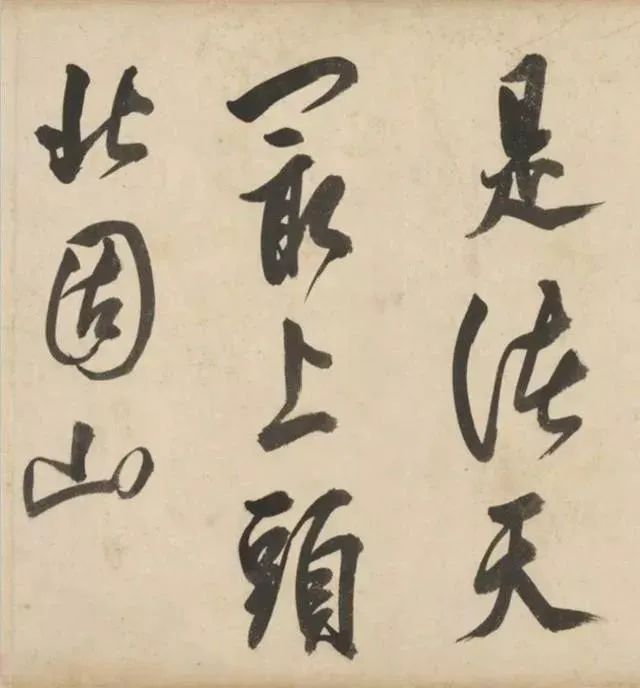 是諸天
最上頭
北固山